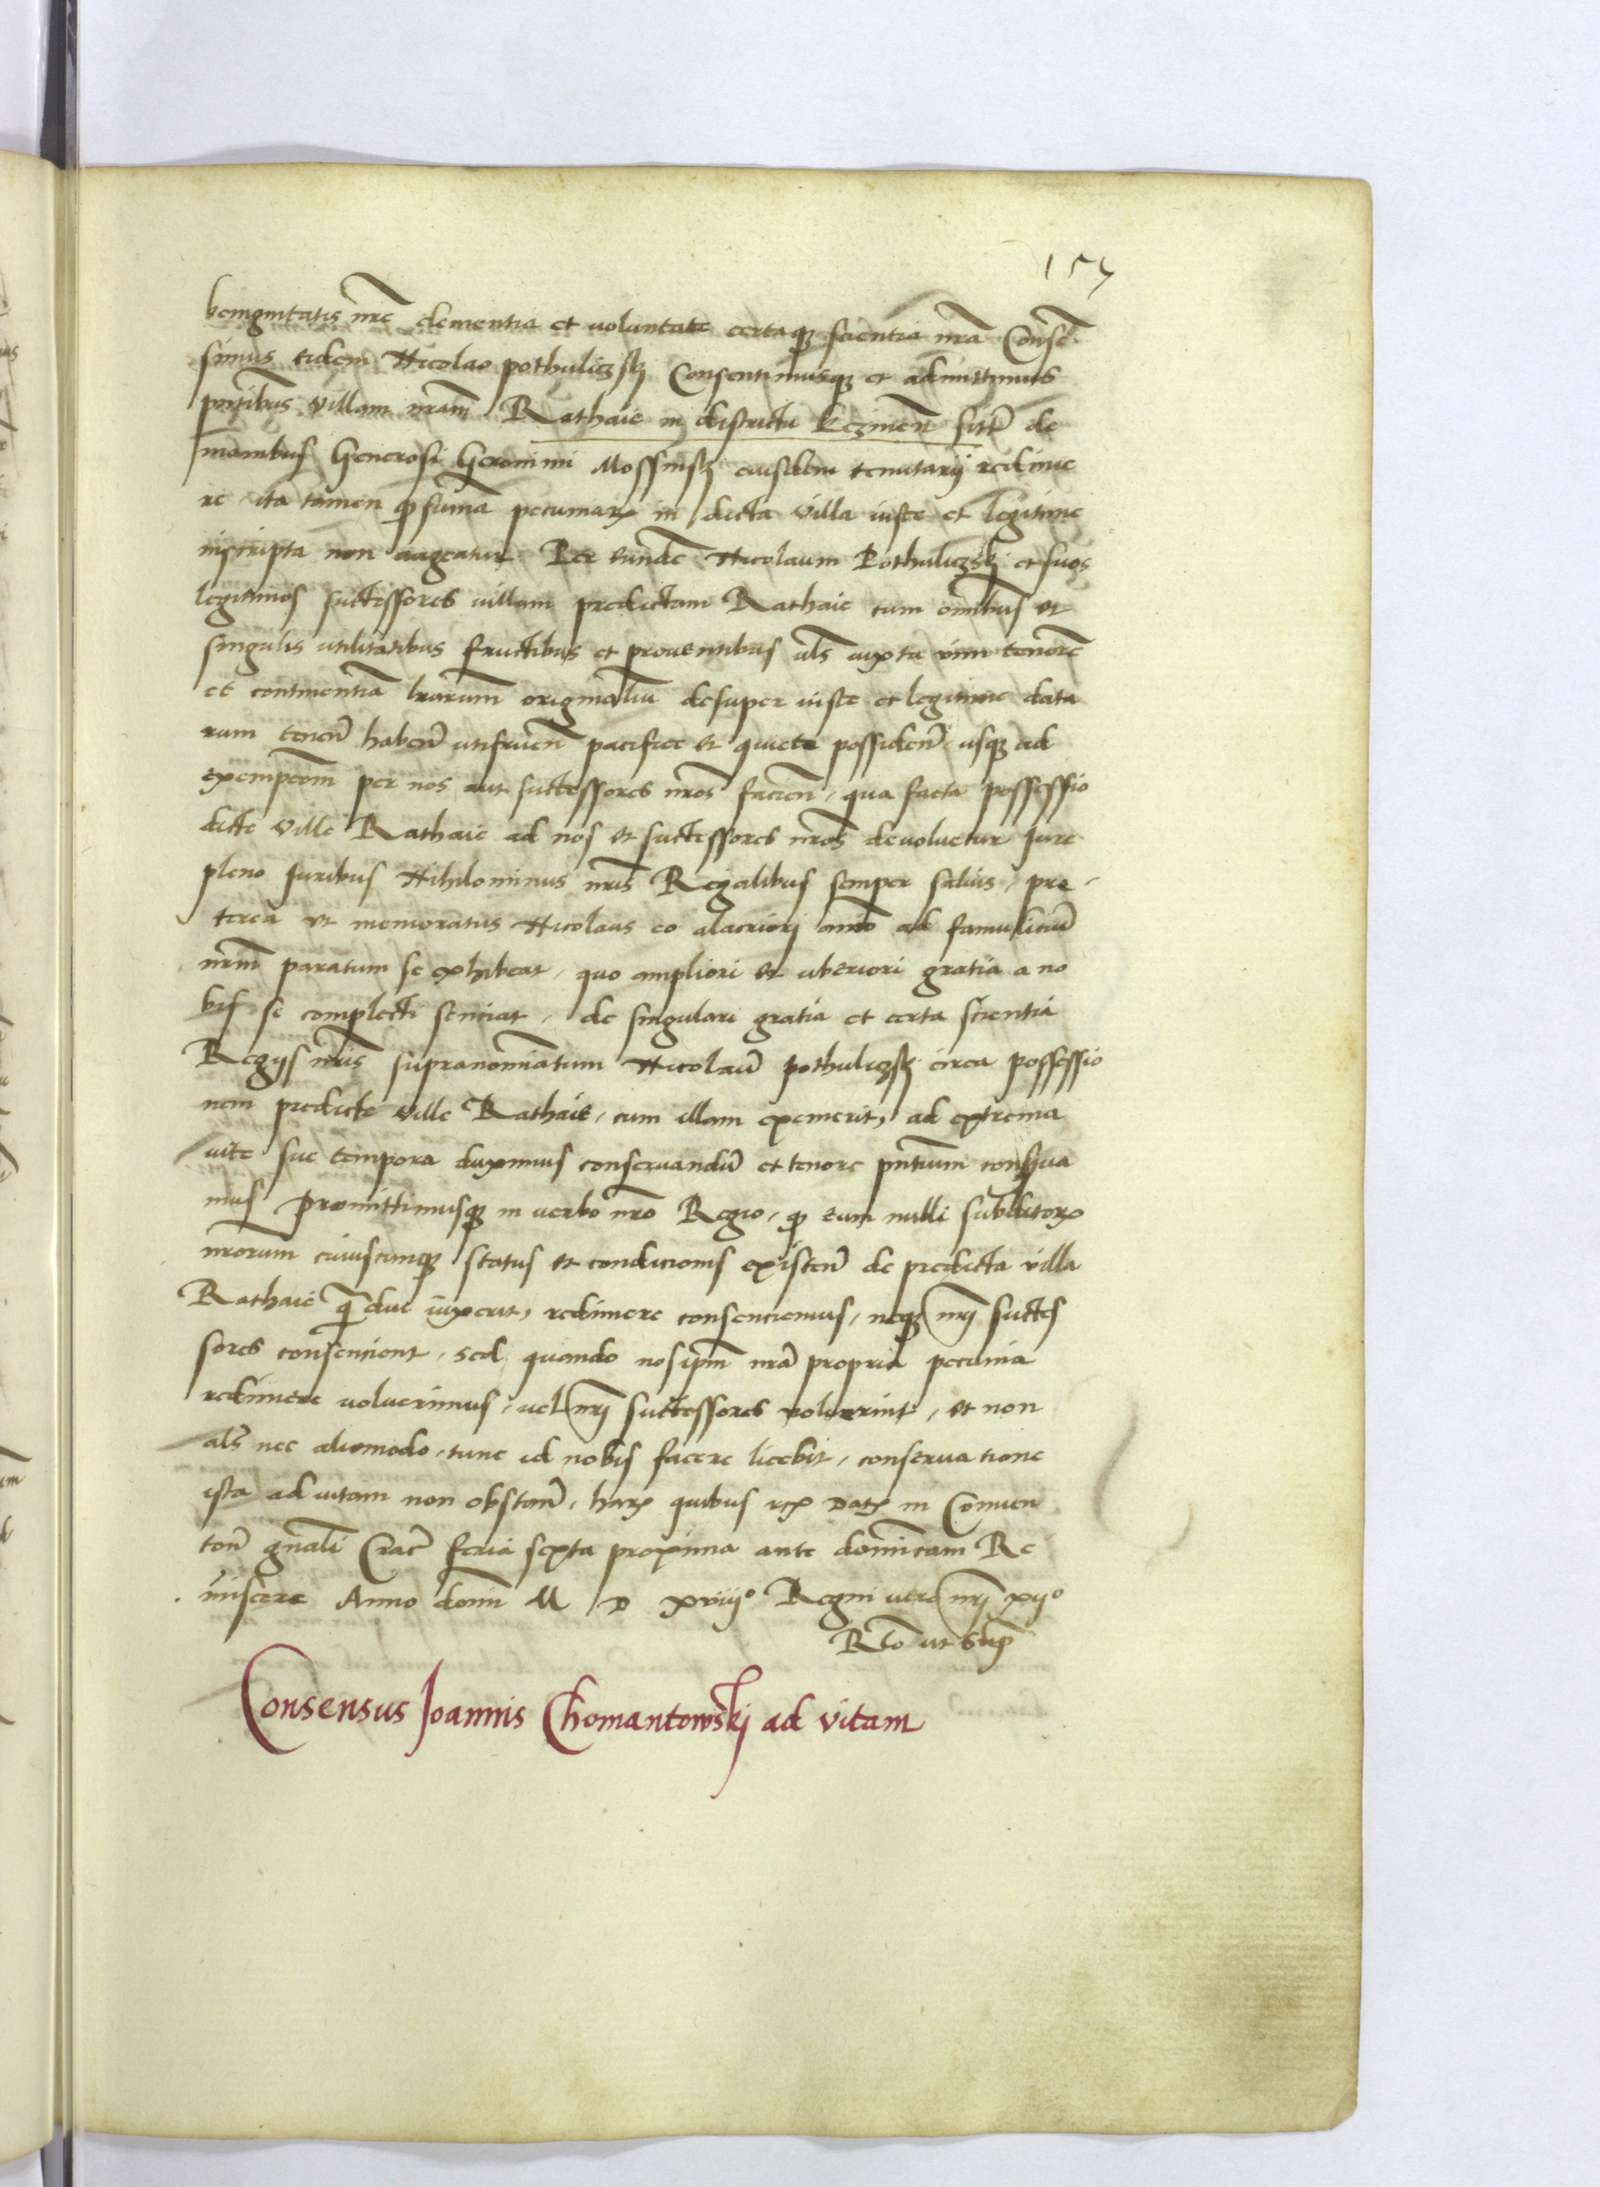 157
benignitatis nr̄e clementia et voluntate certaqꝫ scientia nr̄a Consē
simus eidem Nicolao pothuliczskj Consentimusqꝫ et admittimus
pn̄tibus villam nr̄am Rathaie in districtu Ksznen̄ sitā de
manibus Generosi Geronimi Mossinskj eiusdem tenutarij redime
re ita tamen qꝫ sūma pecuniarꝫ in dicta villa iuste et legitime
inscripta non augeatur Per eundē Nicolaum Pothuliczskj et suos
legitimos successores villam predictam Rathaie cum om̄ibus et
singulis utilitatibus fructibus et proventibus al̄s iuxta vim tenorē
et continentiā lr̄arum originaliū desuper iuste et legitime data
rum tenen̄ haben̄ utifruen̄ pacifice et quiete possiden̄ usqꝫ ad
exempcom̄ per nos aut successores nr̄os facien̄, qua facta possessio
dicte ville Rathaie ad nos et successores nr̄os devoluetur Jure
pleno Juribus Nihilominus nr̄is Regalibus semper salvis, pre-
terea ut memoratus Nicolaus eo alacriorj aīmo ad famuliciū
nr̄m paratum se exhibeat, quo ampliori et uberiori gratia a no
bis se complecti senciat, de singulari gratia et certa scientia
Regijs nr̄is supranomīatum Nicolaū pothuliczskj circa possessio
nem predicte ville Rathaie, cum illam exemerit, ad extrema
vite sue tempora duximus conservandū et tenore pn̄tium conserva
mus promittimusqꝫ in verbo nr̄o Regio, qꝫ eum nulli subditorꝫ
nr̄orum cuiuscunqꝫ status et condicionis existen̄ de predicta villa
Rathaie q̄ diu vixerit, redimere consenciemus, neqꝫ nr̄j succes
sores consencient, sed quando nos ipm̄ nr̄a propria pecunia
redimere voluerimus, vel nr̄j successores voluerint, et non
al̄s nec aliomodo, tunc id nobis facere licebit, conservatione
ista ad vitam non obstan̄, harꝫ quibus rꝫ Datꝫ in Conven
ton̄ gn̄ali Crac̄ feria sexta proxima ante dominicam Re
miniscere Anno domī M D xviij° Regni vero nr̄j xij°
Rl̄o ut supᵃ
Consensus Joannis Chomantowskj ad vitam